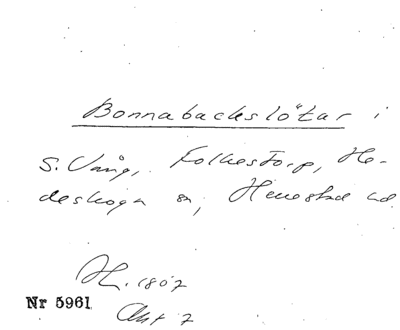 Bonnabackslötar i
S. Vång, Folkestorp, He-
deskoga sn, Herrestad hd.
H. 1807
Akt 7
Nr 5961